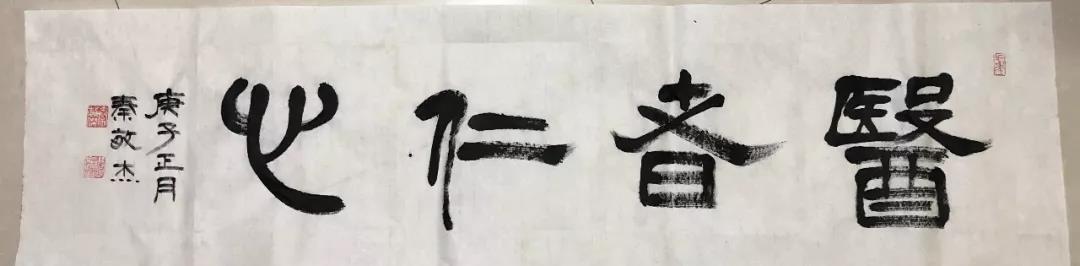 醫者仁心
庚子正月
秦敬杰